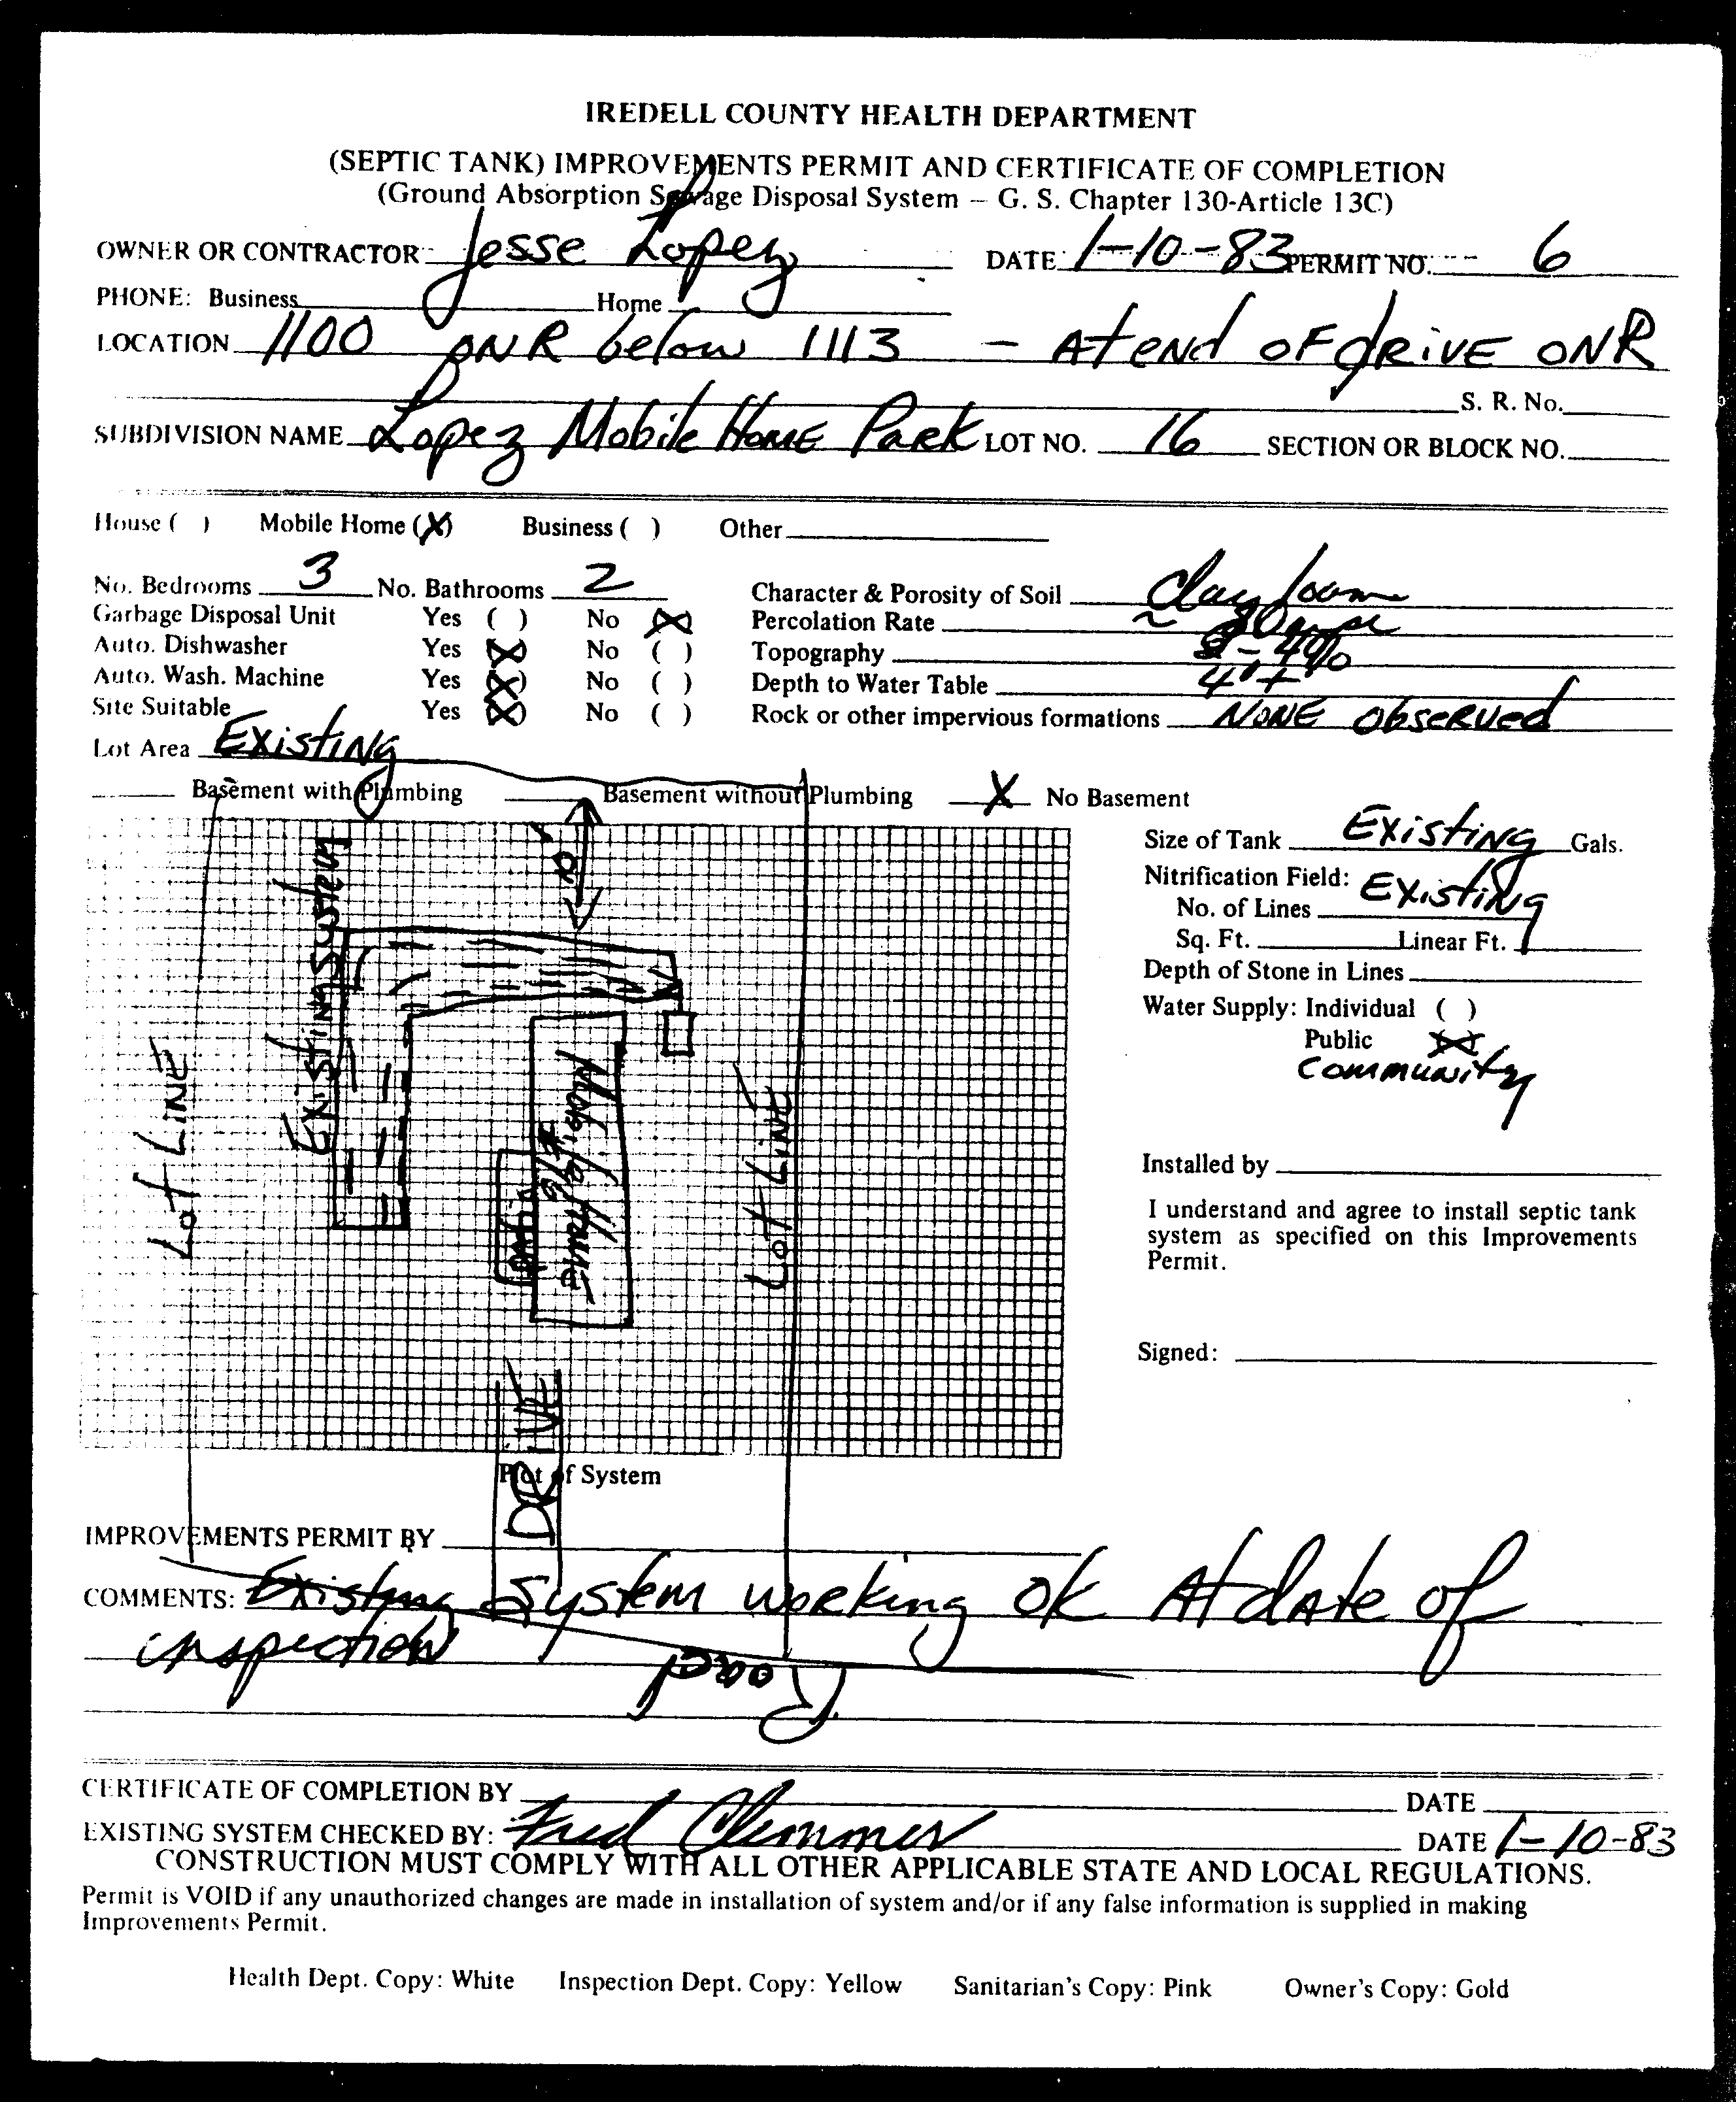 IREDELL COUNTY HEALTH DEPARTMENT
(SEPTIC TANK) IMPROVEMENTS PERMIT AND CERTIFICATE OF COMPLETION
(Ground Absorption Sewage Disposal System – G. S. Chapter 130-Article 13C)
OWNER OR CONTRACTOR Jesse Lopez DATE 1-10-83 PERMIT NO. 6
PHONE: Business Home
LOCATION 1100 ON R below 1113 - At end OF dRiVE ON R
S. R. No.
SUBDIVISION NAME Lopez Mobile Home Park LOT NO. 16 SECTION OR BLOCK NO.
House ( ) Mobile Home (X) Business ( ) Other
No. Bedrooms 3 No. Bathrooms 2 Character & Porosity of Soil Clay loam
Garbage Disposal Unit Yes ( ) No (X) Percolation Rate ~
Auto. Dishwasher Yes (X) No ( ) Topography 2-4%
Auto. Wash. Machine Yes (X) No ( ) Depth to Water Table 4'+
Site Suitable Yes (X) No ( ) Rock or other impervious formations NONE Observed
Lot Area Existing
Basement with Plumbing Basement without Plumbing X No Basement
Size of Tank Existing Gals.
Nitrification Field: Existing
No. of Lines
Sq. Ft. Linear Ft.
Depth of Stone in Lines
Water Supply: Individual ( )
Public (X)
Community
Installed by
I understand and agree to install septic tank
system as specified on this Improvements
Permit.
Signed:
Lot LiNE
ExistiNg System
Mobile Home
Lot LiNE
DRIVE
Plot of System
IMPROVEMENTS PERMIT BY
COMMENTS: Existing System working OK At date of
inspection
Road
CERTIFICATE OF COMPLETION BY DATE
EXISTING SYSTEM CHECKED BY: Fred Clemmer DATE 1-10-83
CONSTRUCTION MUST COMPLY WITH ALL OTHER APPLICABLE STATE AND LOCAL REGULATIONS.
Permit is VOID if any unauthorized changes are made in installation of system and/or if any false information is supplied in making
Improvements Permit.
Health Dept. Copy: White Inspection Dept. Copy: Yellow Sanitarian's Copy: Pink Owner's Copy: Gold